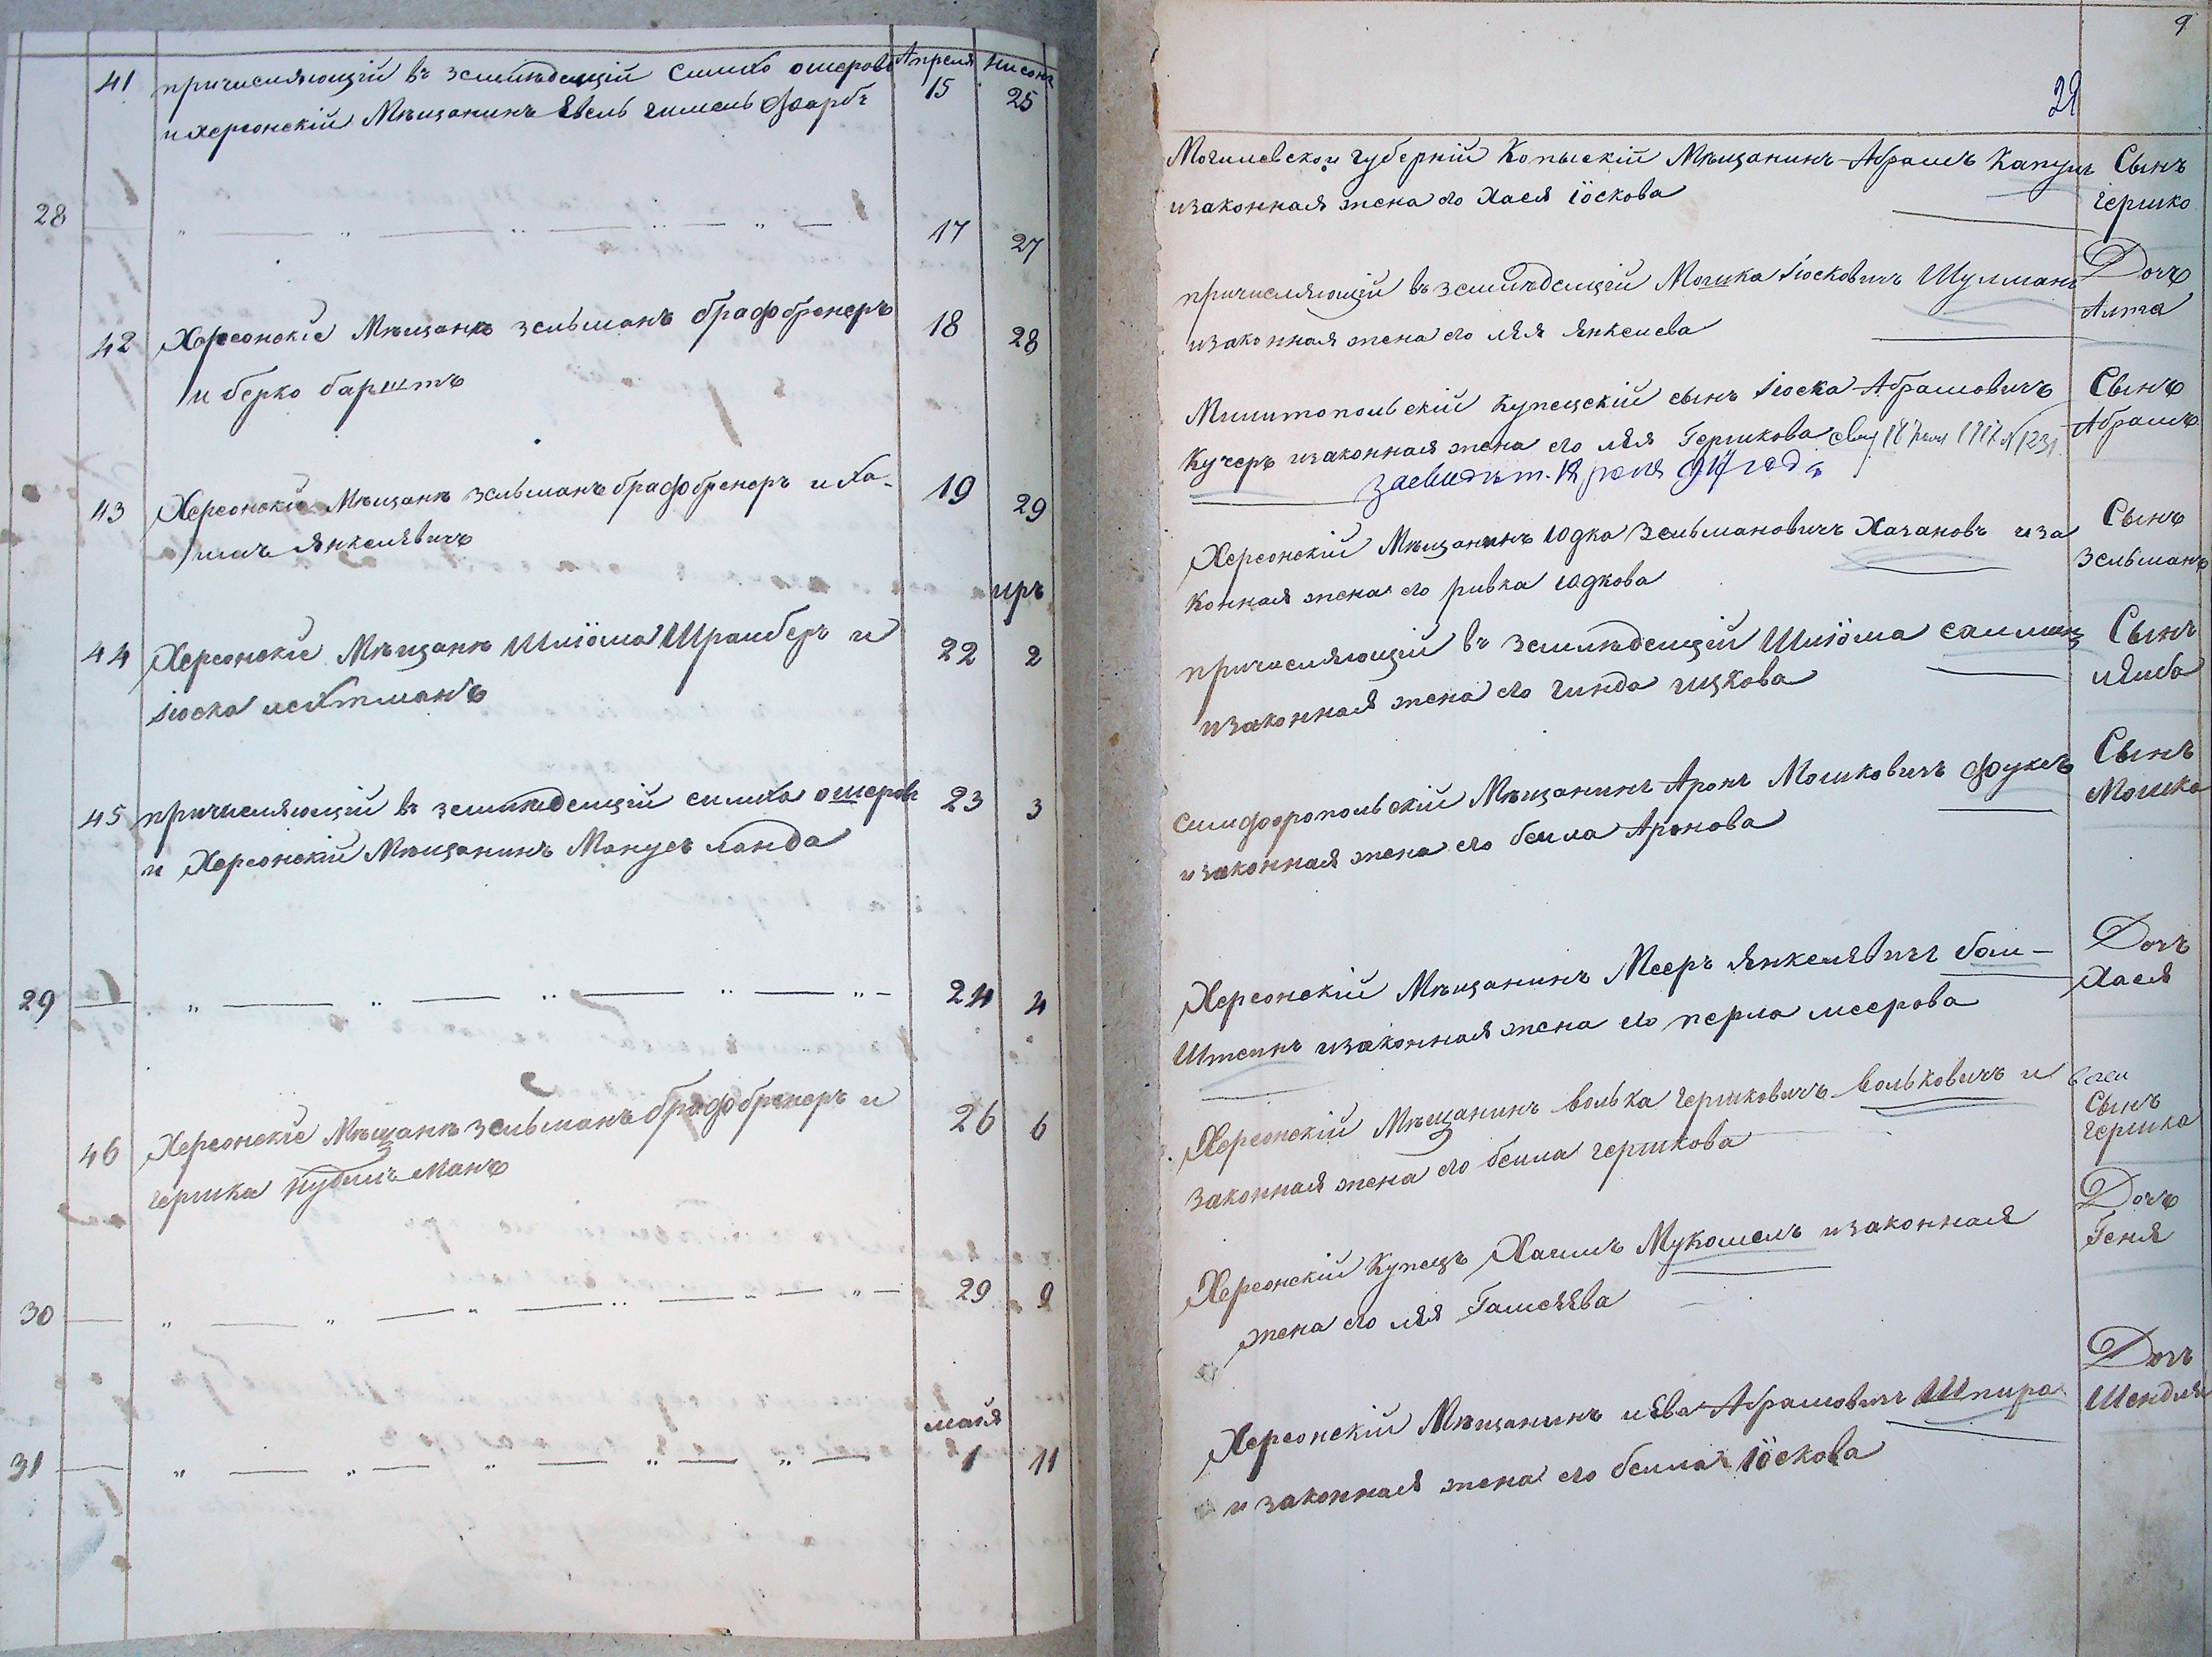 41 причисляющій въ земледелцій Симхо ошеровъ Апреля Нисонъ
и херсонскій Мѣщанинъ Евель гимель фарбъ 15 25
28 17 27
42 Херсонскіе Мѣщанѣ зельманъ брафбренеръ 18 28
и берко барштъ
43 Херсонскіе Мѣщанѣ зельманъ брафбренеръ и Ха- 19 29
имъ янкелевичъ
иръ
44 Херсонскіе Мѣщанѣ Шліома Шрайберъ и 22 2
Іоска лейтманъ
45 причисляющій въ земледелцій симха ошеровъ 23 3
и Херсонскій Мѣщанинъ Манусъ ланда
29 24 4
46 Херсонскіе Мѣщанѣ зельманъ брафбренеръ и 26 6
гершка нудильманъ
30 29 9
майя
31 1 11
9
29
Могилевской губерній Копыскій Мѣщанинъ Абрамъ Капушъ Сынъ
изаконная жена его Хася іоскова гершко
причисляющій въ земледелцій Мошка Іосковичъ Шулманъ Дочь
изаконная жена его лея янкелева Алта
Мелитопольскій Купецскій сынъ Іоска Абрамовичъ Сынъ
Кучеръ изаконная жена его лея Гершкова 1917 № 1231 Абрамъ
засвидѣт. 18 917 года
Херсонскій Мѣщанинъ Юдка Зельмановичъ Хазановъ иза Сынъ
Конная жена его ривка юдкова Зельманъ
причисляющій въ земледелцій Шліома Сынъ
изаконная жена его гинда ицкова лейба
Симферопольскій Мѣщанинъ Аронъ Мошковичъ фуксъ Сынъ
изаконная жена его бейла Аронова Мошка
Херсонскій Мѣщанинъ Мееръ янкелевичъ бом- Дочь
Штейнъ изаконная жена его перла меерова Хася
Херсонскій Мѣщанинъ волька гершковичъ вольковичъ и
законная жена его бейла гершкова Сынъ гершка
Херсонскій Купецъ Хаимъ Мукомель изаконная Дочь
жена его лея Гамшеева Геня
Херсонскій Мѣщанинъ лейва Абрамовичъ Шпира Дочь
и законная жена его бейла Іоскова Шендля